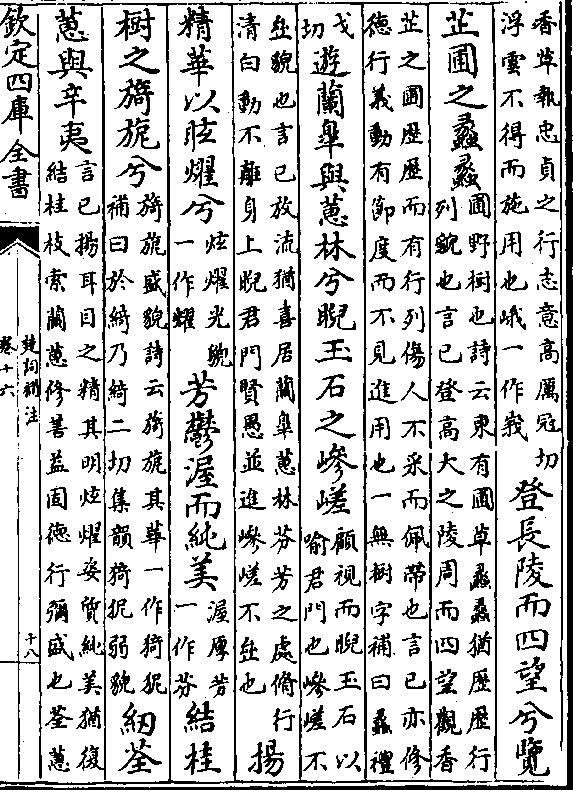 香草執忠貞之行志意高厲冠切
浮雲不得而施用也峨一作峩
登長陵而四望兮覽
芷圃之蠡蠡
圃野樹也詩云東有圃草蠡蠡猶歷歷行
列貌也言已登高大之陵周而四望觀香
芷之圃歷歷而有行列傷人不采而佩帶也言已亦修
德行義動有節度而不見進用也一無樹字補曰蠡禮
戈
切
遊蘭臯與蕙林兮睨玉石之嵾嵯
顧視而睨玉石以
喻君門也嵾嵯不
齊貌也言已放流猶喜居蘭臯蕙林芬芳之處脩行
清白動不離身上睨君門賢愚並進嵾嵯不齊也
揚
精華以眩燿兮
炫燿光貌
一作耀
芳鬱渥而純美
渥厚芳
一作芬
結桂
樹之旖旎兮
旖旎盛貌詩云旖旎其華一作猗狔
補曰於綺乃綺二切集韻猗狔弱貌
紉荃
蕙與辛夷
言已揚耳目之精其明炫燿姿質純美猶復
結桂枝索蘭蕙修善益固德行彌盛也荃蕙
欽定四庫全書
楚詞補注
卷十六
十八